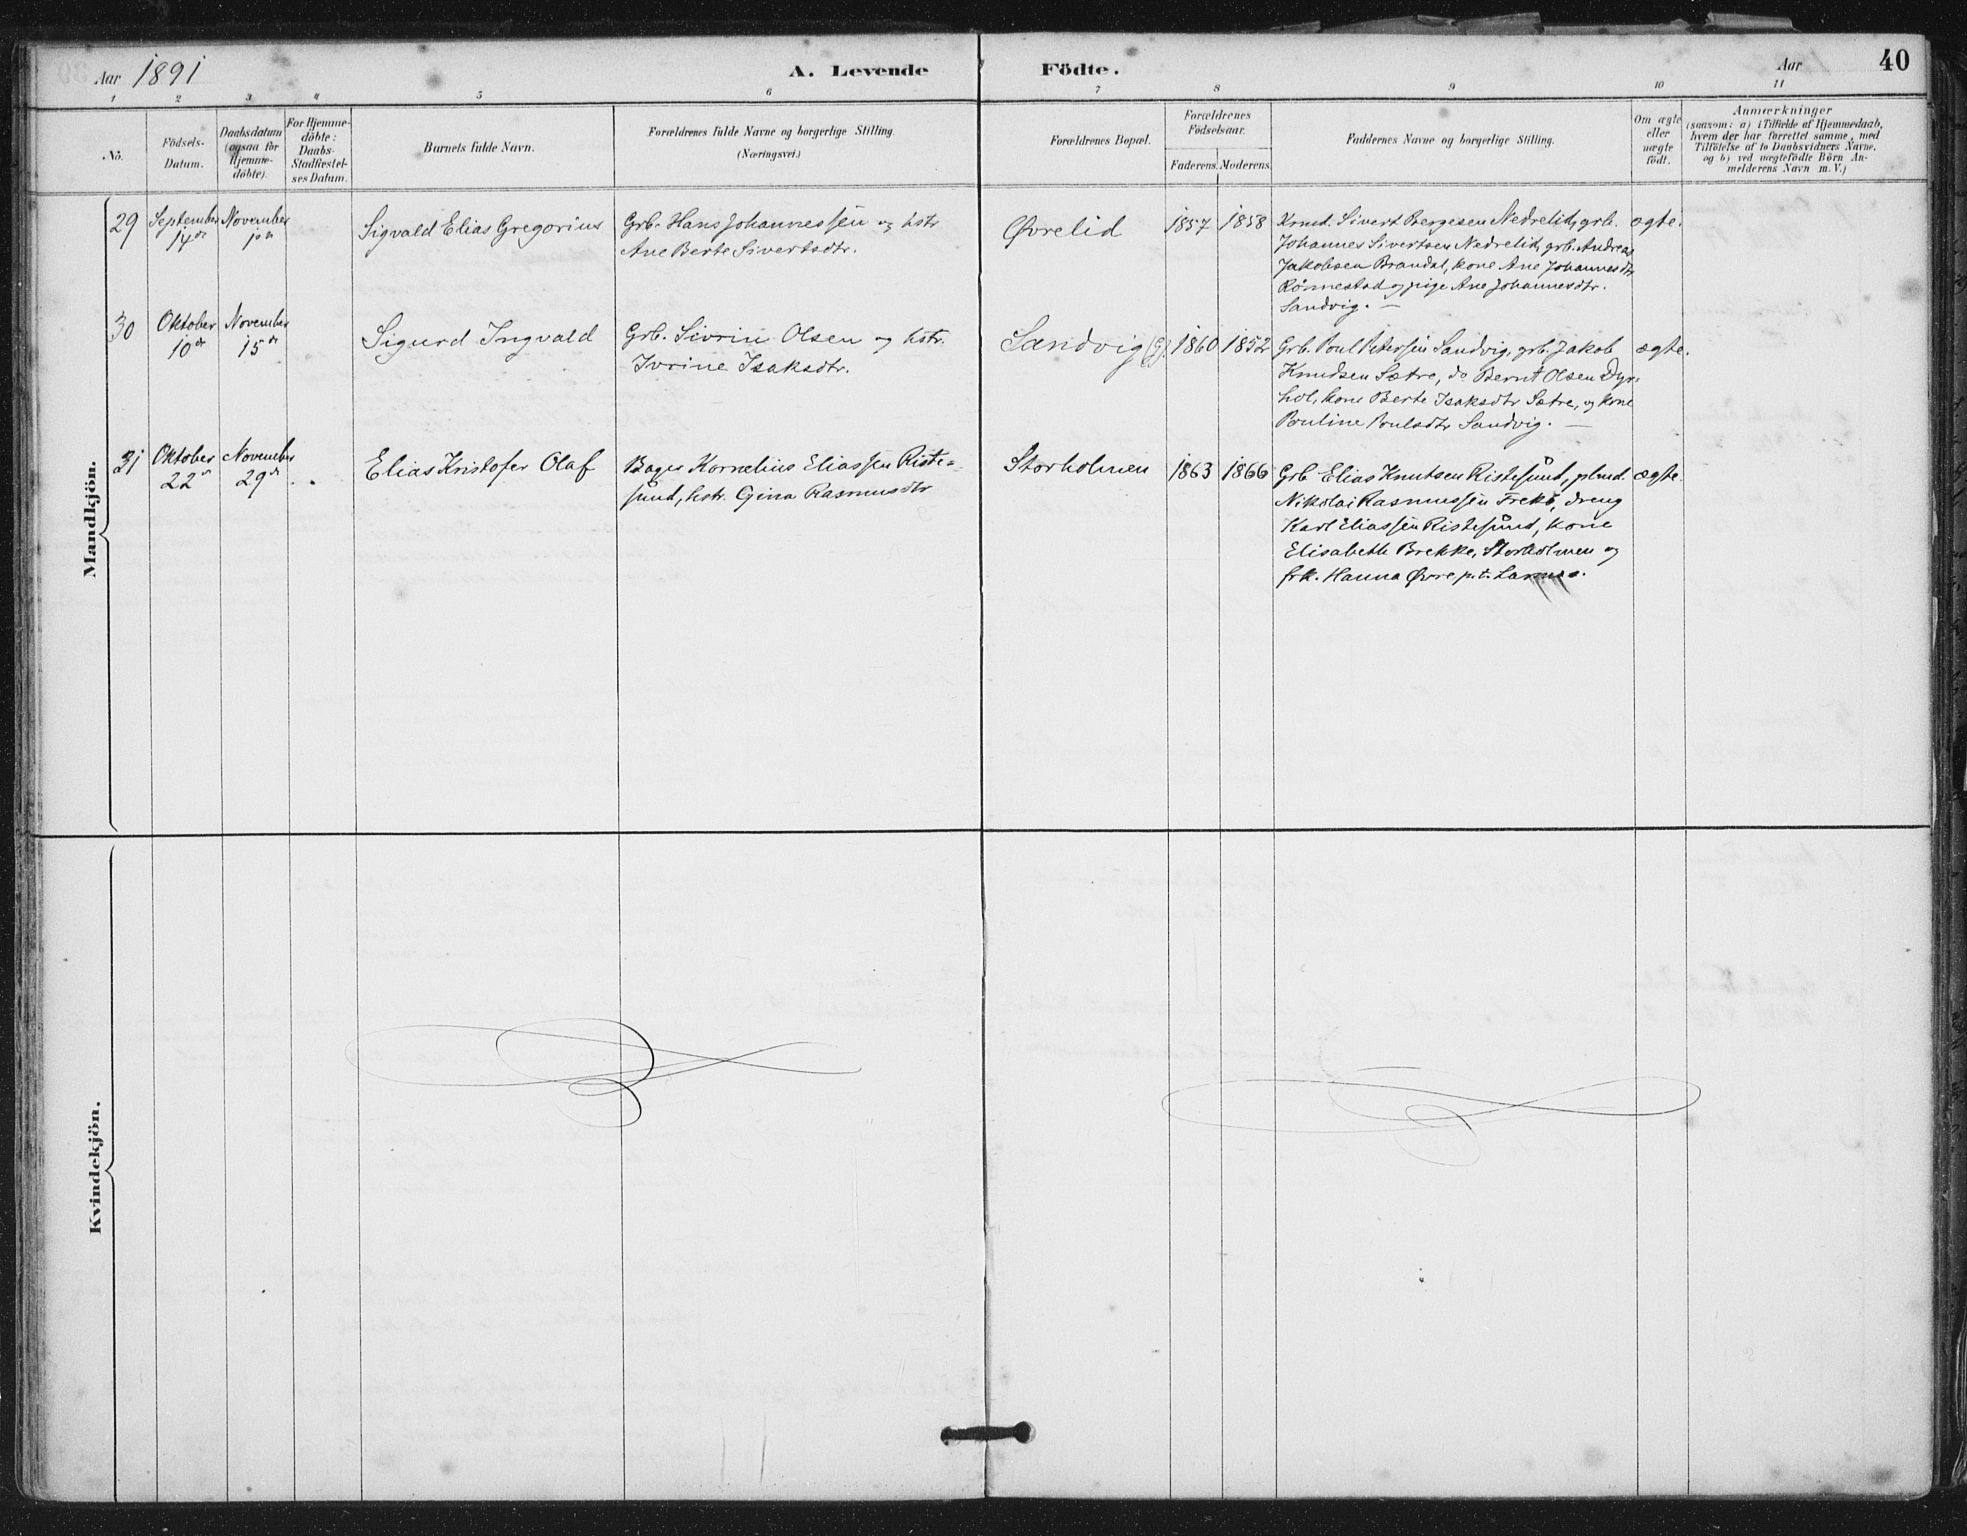 Aar 1891
A. Levende Födte.
Aar
40
1 2 3 4 5 6 7 8 9 10 11
No.
Födsels-
Datum.
Daabsdatum
(ogsaa for
Hjemme-
döbte).
For Hjemme-
döbte:
Daabs-
Stadfæstel-
ses Datum.
Barnets fulde Navn.
Forældrenes fulde Navne og borgerlige Stilling.
(Næringsvei.)
Forældrenes Bopæl.
Forældrenes
Födselsaar.
Faderens. Moderens.
Faddernes Navne og borgerlige Stilling.
Om ægte
eller
uægte
födt.
Anmærkninger
(saasom: a) i Tilfælde af Hjemmedaab,
hvem der har forrettet samme, med
Tilföielse af to Daabsvidners Navne,
og b) ved uægtefödte Börn An-
melderens Navn m. V.)
Mandkjön.
29
September
14de
November
1ste
Sigvald Elias Gregorius
Grb. Hans Johannessen og hstr
Ane Berte Sivertsdtr.
Øvrelid
1857
1858
Krmd. Sivert Bergesen Nedrelid, grb.
Johannes Sivertsen Nedrelid, grb. Andreas
Jakobsen Brandal, kone Ane Johannesdtr
Rönnestad og pige Ane Johannesdtr.
Sandvig. —
ægte.
30
Oktober
10de
November
15de
Sigurd Ingvald
Grb. Sivrin Olsen og hstr.
Ivrine Isaksdtr.
Sandvig (G).
1860
1852
Grb. Poul Petersen Sandvig, grb. Jakob
Knudsen Sætre, do Bernt Olsen Dyr=
hol, kone Berte Isaksdtr Sætre, og kone
Pouline Poulsdtr Sandvig. —
ægte.
31
Oktober
22de
November
29de
Elias Kristofer Olaf
Bager Kornelius Eliassen Riste=
sund, hstr. Gina Rasmusdtr
Storholmen
1863
1866
Grb Elias Knutsen Ristesund, plmd.
Nikolai Rasmussen Frekö, dreng
Karl Eliassen Ristesund, kone
Elisabeth Brekke, Storholmen og
frk. Hanna Øvre p.t. Larsnes.
ægte.
Kvindekjön.